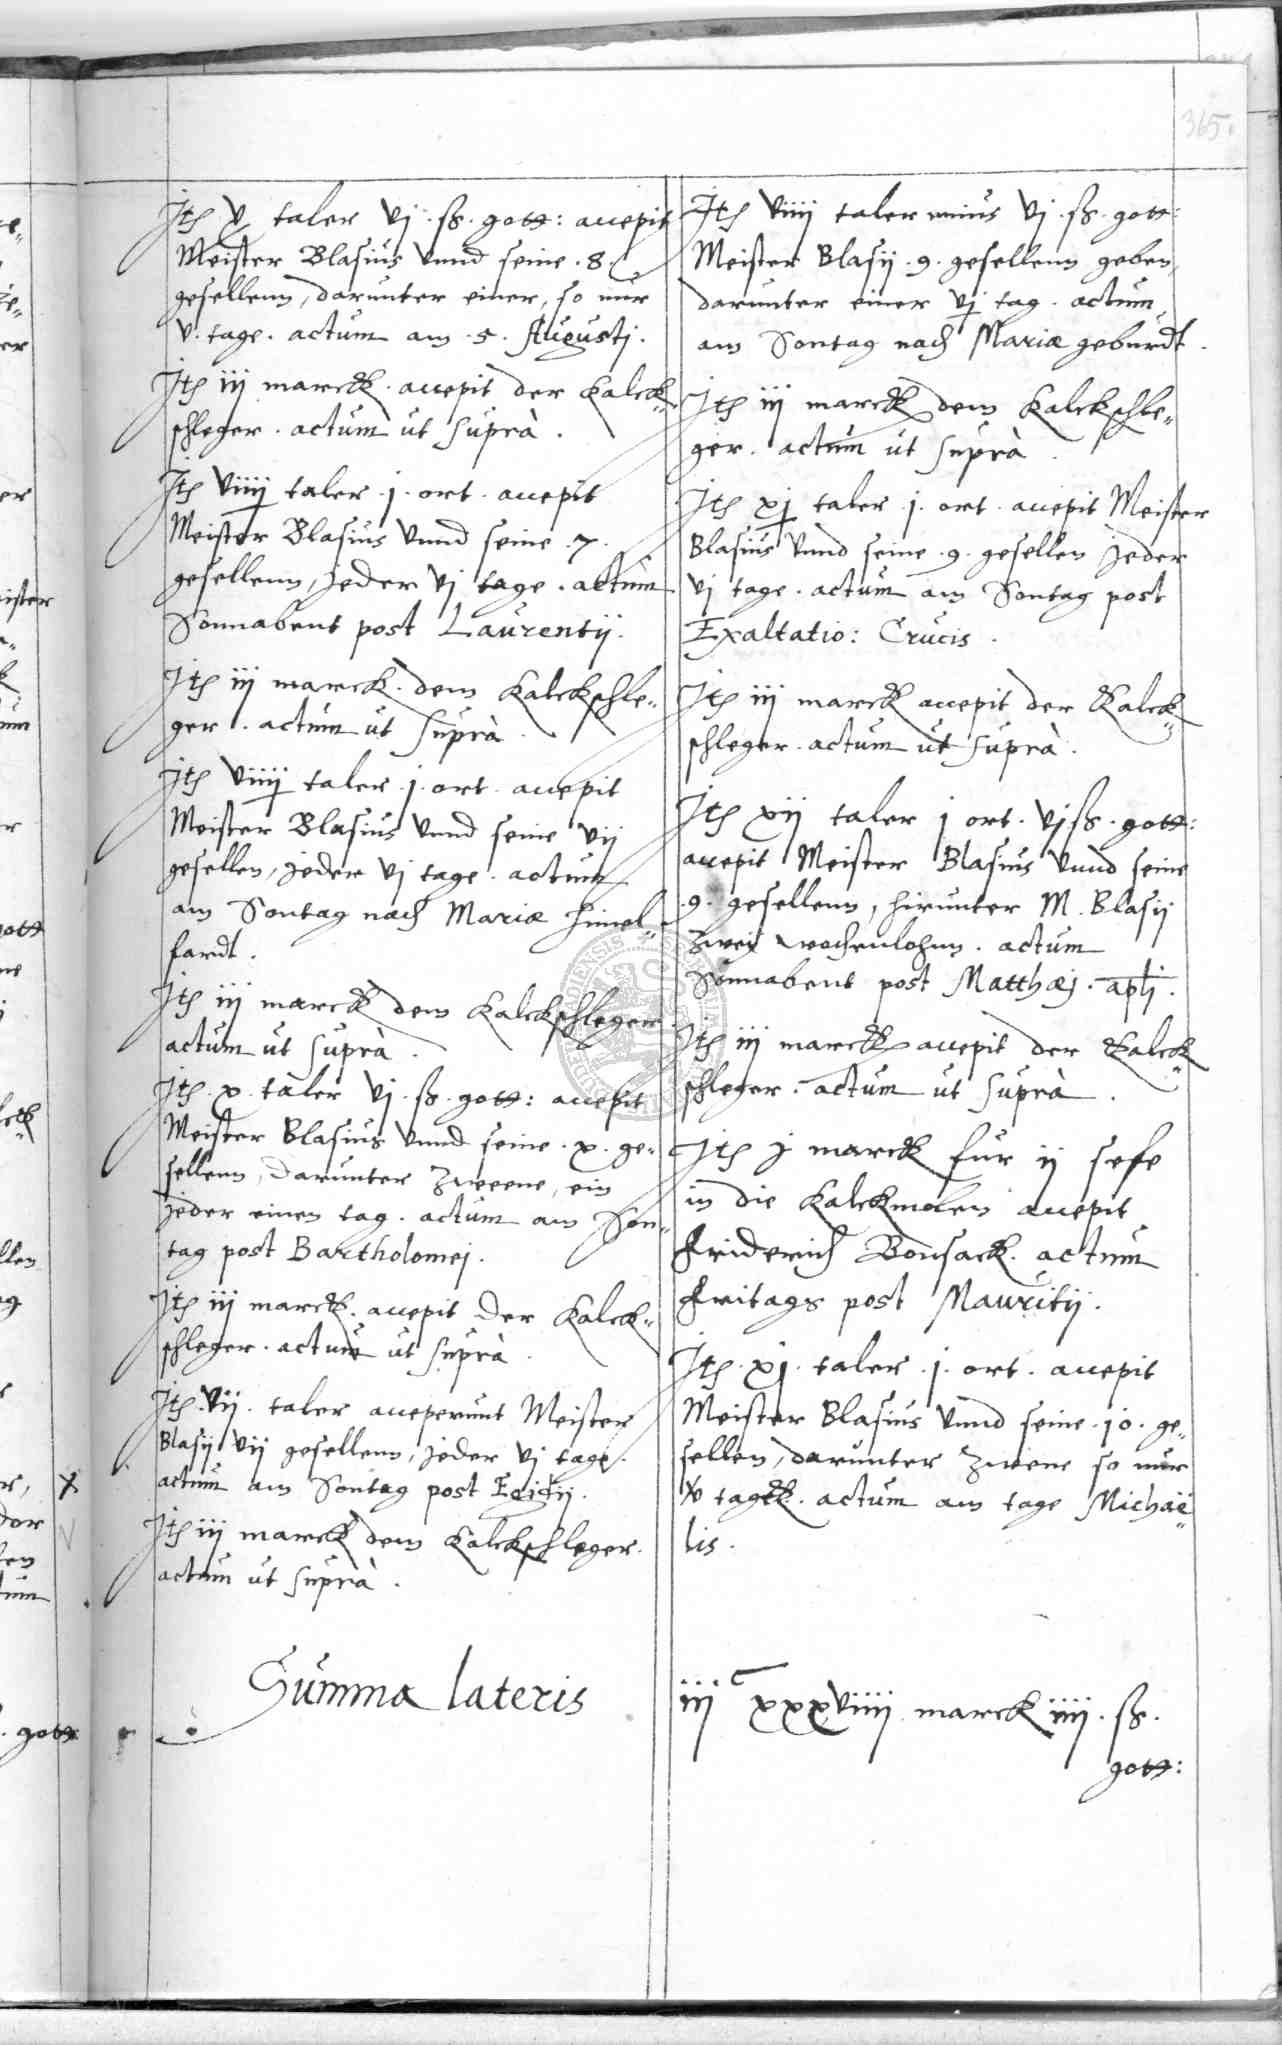 365.
Jtem v taler vj. ß. gott: accepit
Meister Blasius vnnd seine .8.
gesellenn, darunter einer, so nur
v. tage. actum am .5. Augustj.
Jtem iij marck. accepit der Kalck„
schleger. actum ut suprà.
Jtem viiij taler .j. ort. accepit
Meister Blasius vnnd seine .7.
gesellenn, jeder vj tage. actum
Sonnabent post Laurentij.
Jtem iij marck. dem Kalckschle„
ger. actum ut suprà.
Jtem viiij taler .j. ort. accepit
Meister Blasius vnnd seine vij
gesellen, jeder vj tage. actum
am Sontag nach Mariæ himel„
fardt.
Jtem iij marck dem Kalckschleger
actum ut suprà.
Jtem .x. taler vj. ß. gott: accepit
Meister Blasius vnnd seine .x. ge„
sellenn, darunter zweene, ein
jeder einen tag. actum am Son„
tag post Bartholomej.
Jtem iij marck. accepit der Kalck„
schleger. actum ut suprà.
Jtem .vij. taler acceperunt Meister
Blasij vij gesellenn, jeder vj tage.
actum am Sontag post Egidij.
Jtem iij marck dem Kalckschleger.
actum ut suprà.
Jtem viiij taler minus vj. ß. gott:
Meister Blasij .9. gesellenn geben,
darunter einer vj tag. actum
am Sontag nach Mariæ geburdt.
Jtem iij marck dem Kalckschle„
ger. actum ut suprà.
Jtem xj taler .j. ort. accepit Meister
Blasius vnnd seine .9. gesellen jeder
vj tage. actum am Sontag post
Exaltatio: Crucis.
Jtem iij marck accepit der Kalck„
schleger. actum ut suprà.
Jtem xij taler j ort. vj ß. gott:
accepit Meister Blasius vnnd seine
.9. gesellenn, hirunter M. Blasij
zwei wochenlohnn. actum
Sonnabent post Matthæj. apli.
Jtem iij marck accepit der Kalck„
schleger. actum ut suprà.
Jtem j marck fur ij sefe
in die Kalckmolen accepit
Friderich Bonsack. actum
Fritags post Mauritij.
Jtem .xj. taler .j. ort. accepit
Meister Blasius vnnd seine .10. ge„
sellen, darunter zwene so nur
v tagck. actum am tage Michaë„
lis.
Summa lateris
iij c xxxviiij marck iiij. ß.
gott: